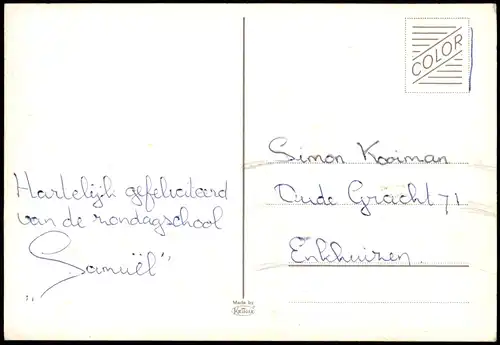 COLOR
Simon Kooiman
Oude Gracht 71
Enkhuizen.
Hartelijk gefeliciteerd
van de zondagschool
„Samuël"
Made by